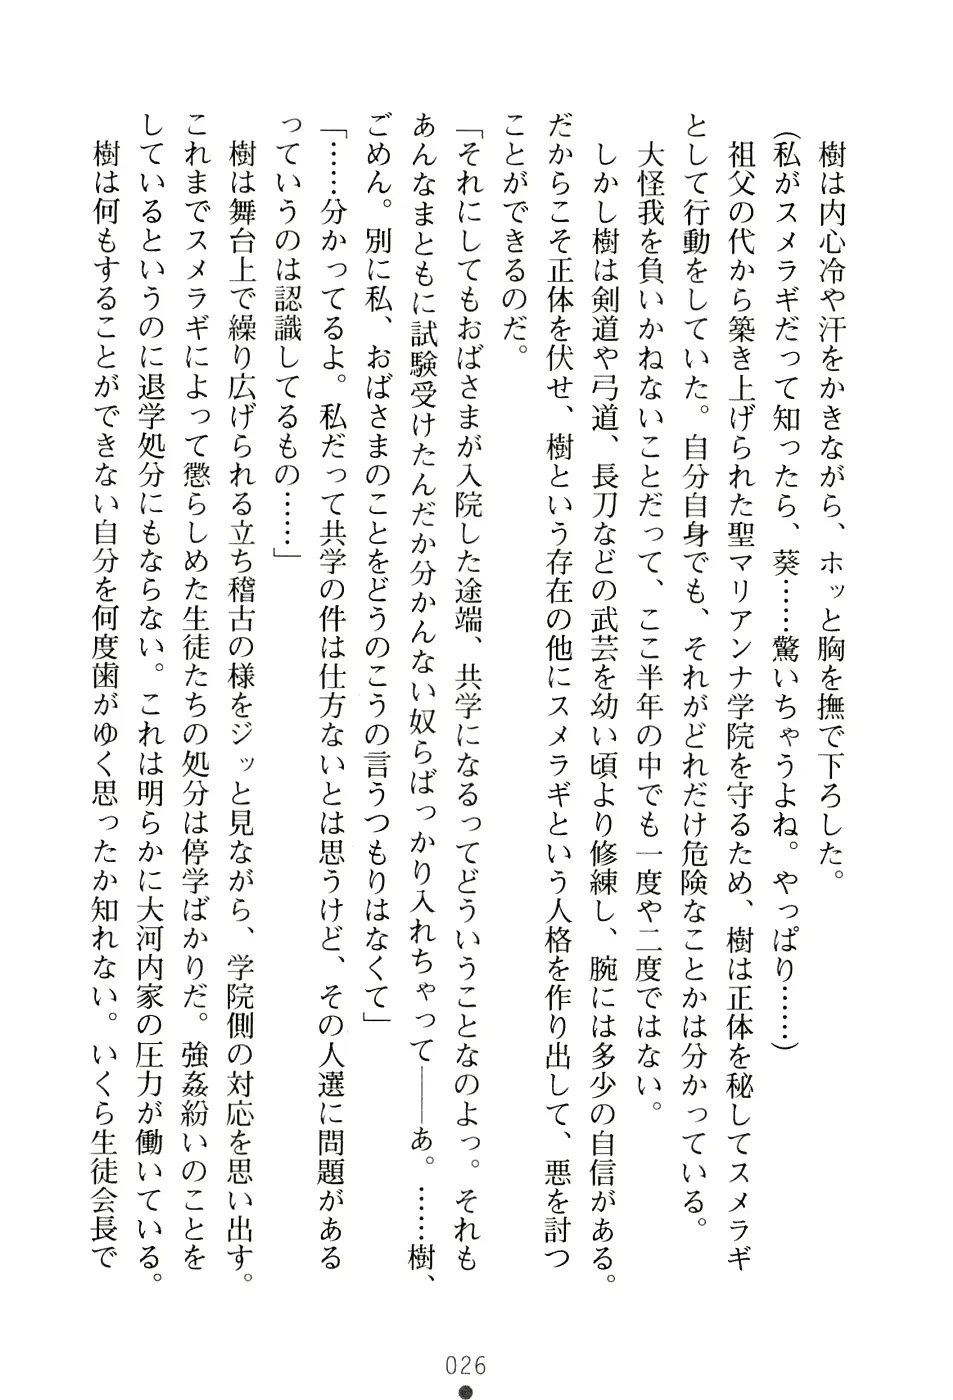 樹は内心冷や汗をかきながら、ホッと胸を撫で下ろした。
（私がスメラギだって知ったら、葵……驚いちゃうよね。やっぱり……）
祖父の代から築き上げられた聖マリアンナ学院を守るため、樹は正体を秘してスメラギ
として行動をしていた。自分自身でも、それがどれだけ危険なことかは分かっている。
大怪我を負いかねないことだって、ここ半年の中でも一度や二度ではない。
しかし樹は剣道や弓道、長刀などの武芸を幼い頃より修練し、腕には多少の自信がある。
だからこそ正体を伏せ、樹という存在の他にスメラギという人格を作り出して、悪を討つ
ことができるのだ。
「それにしてもおばさまが入院した途端、共学になるってどういうことなのよっ。それも
あんなまともに試験受けたんだか分かんない奴らばっかり入れちゃって――あ。……樹、
ごめん。別に私、おばさまのことをどうのこうの言うつもりはなくて」
「……分かってるよ。私だって共学の件は仕方ないとは思うけど、その人選に問題がある
っていうのは認識してるもの……」
樹は舞台上で繰り広げられる立ち稽古の様をジッと見ながら、学院側の対応を思い出す。
これまでスメラギによって懲らしめた生徒たちの処分は停学ばかりだ。強姦紛いのことを
しているというのに退学処分にもならない。これは明らかに大河内家の圧力が働いている。
樹は何もすることができない自分を何度歯がゆく思ったか知れない。いくら生徒会長で
026